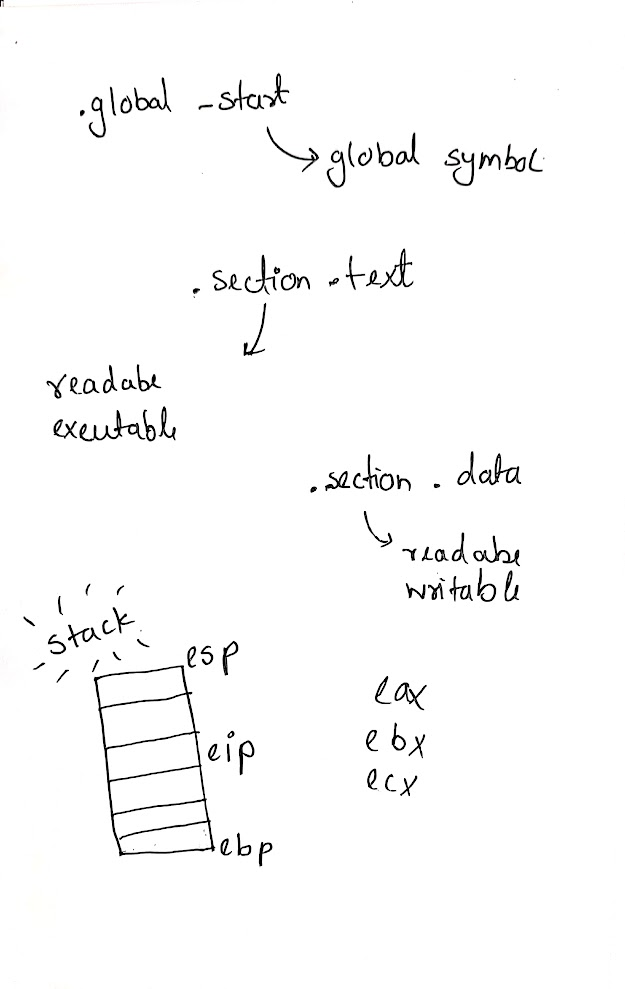 .global _start
global symbol
.section .text
readabe
exeutable
.section . data
readabe
writable
stack
esp
eip
ebp
eax
ebx
ecx